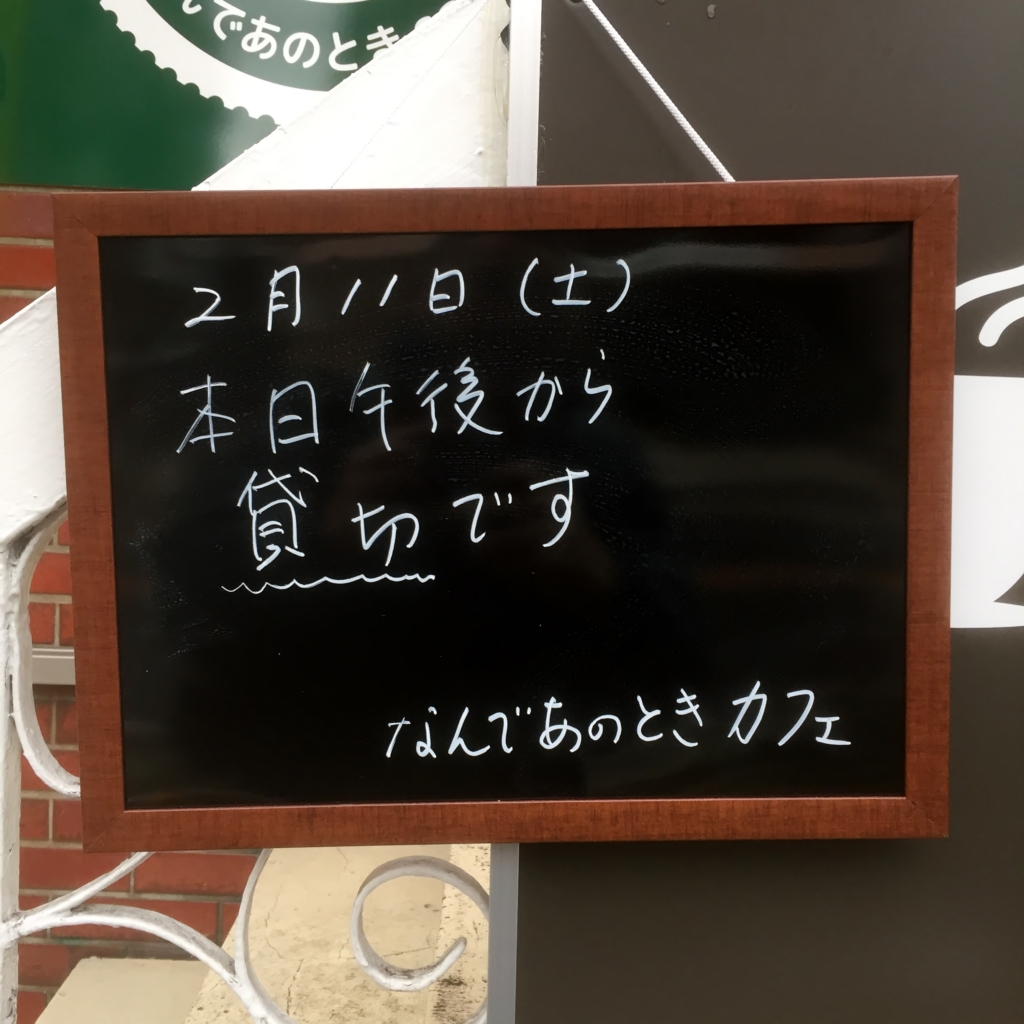 んであのとき
2月11日(土)
本日午後から
貸切です
なんであのときカフェ